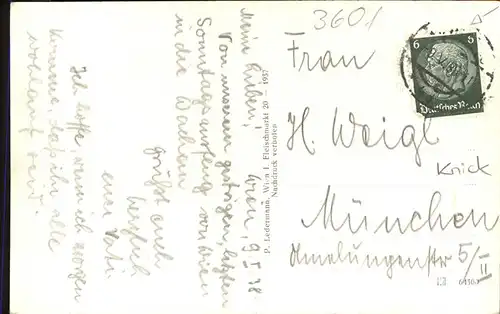 Meine Lieben! Wien, 9. V. 38
Von unserem gestrigen, letzten
Sonntagsausflug von Wien
in die Wachau
grüßt euch
herzlich
euer Vati.
Ich hoffe wenn ich morgen
komme, daß ihr alle
wohlauf seid!
P. Ledermann, Wien I, Fleischmarkt 20 – 1937
Nachdruck verboten
3601
6
Deutsches Reich
Frau
H. Weigl
Knick
München
Amalungenstr 5/II